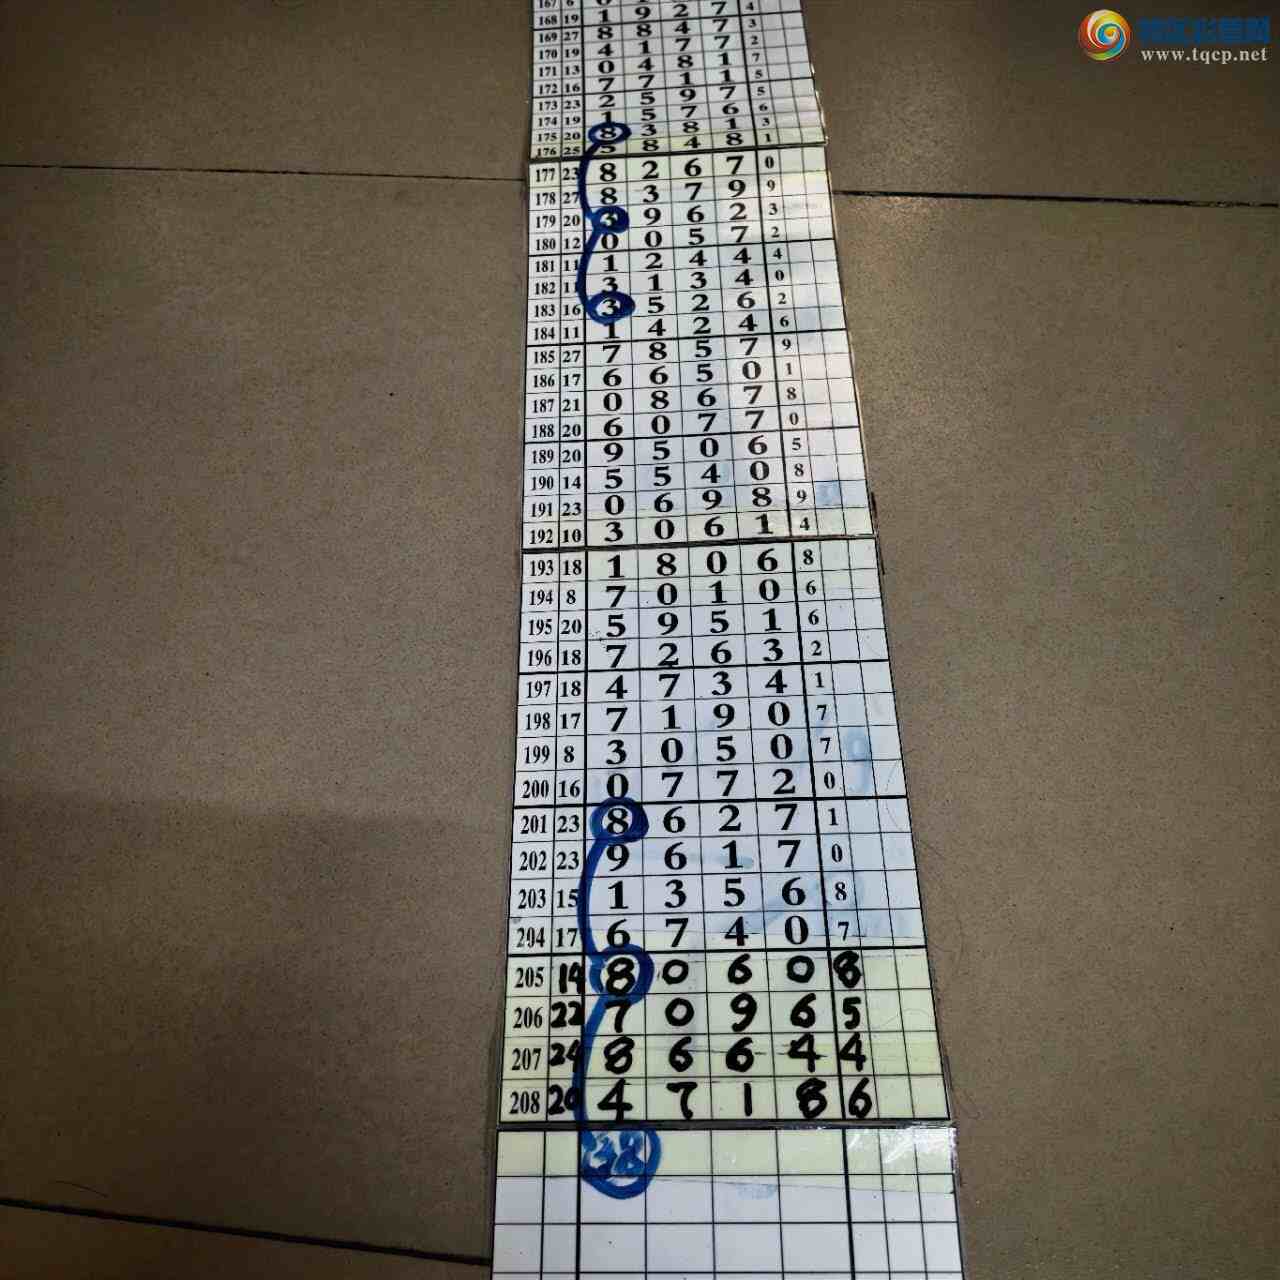 www.tqcp.net
168 19 1 9 2 7 4
169 27 8 8 4 7 3
170 19 4 1 7 7 2
171 13 0 4 8 1 7
172 16 7 7 1 1 5
173 23 2 5 9 7 5
174 19 1 5 7 6 6
175 20 8 3 8 1 3
176 25 5 8 4 8 1
177 23 8 2 6 7 0
178 27 8 3 7 9 9
179 20 3 9 6 2 3
180 12 0 0 5 7 2
181 11 1 2 4 4 4
182 11 3 1 3 4 0
183 16 3 5 2 6 2
184 11 1 4 2 4 6
185 27 7 8 5 7 9
186 17 6 6 5 0 1
187 21 0 8 6 7 8
188 20 6 0 7 7 0
189 20 9 5 0 6 5
190 14 5 5 4 0 8
191 23 0 6 9 8 9
192 10 3 0 6 1 4
193 18 1 8 0 6 8
194 8 7 0 1 0 6
195 20 5 9 5 1 6
196 18 7 2 6 3 2
197 18 4 7 3 4 1
198 17 7 1 9 0 7
199 8 3 0 5 0 7
200 16 0 7 7 2 0
201 23 8 6 2 7 1
202 23 9 6 1 7 0
203 15 1 3 5 6 8
204 17 6 7 4 0 7
205 14 8 0 6 0 8
206 22 7 0 9 6 5
207 24 8 6 6 4 4
208 20 4 7 1 8 6
38